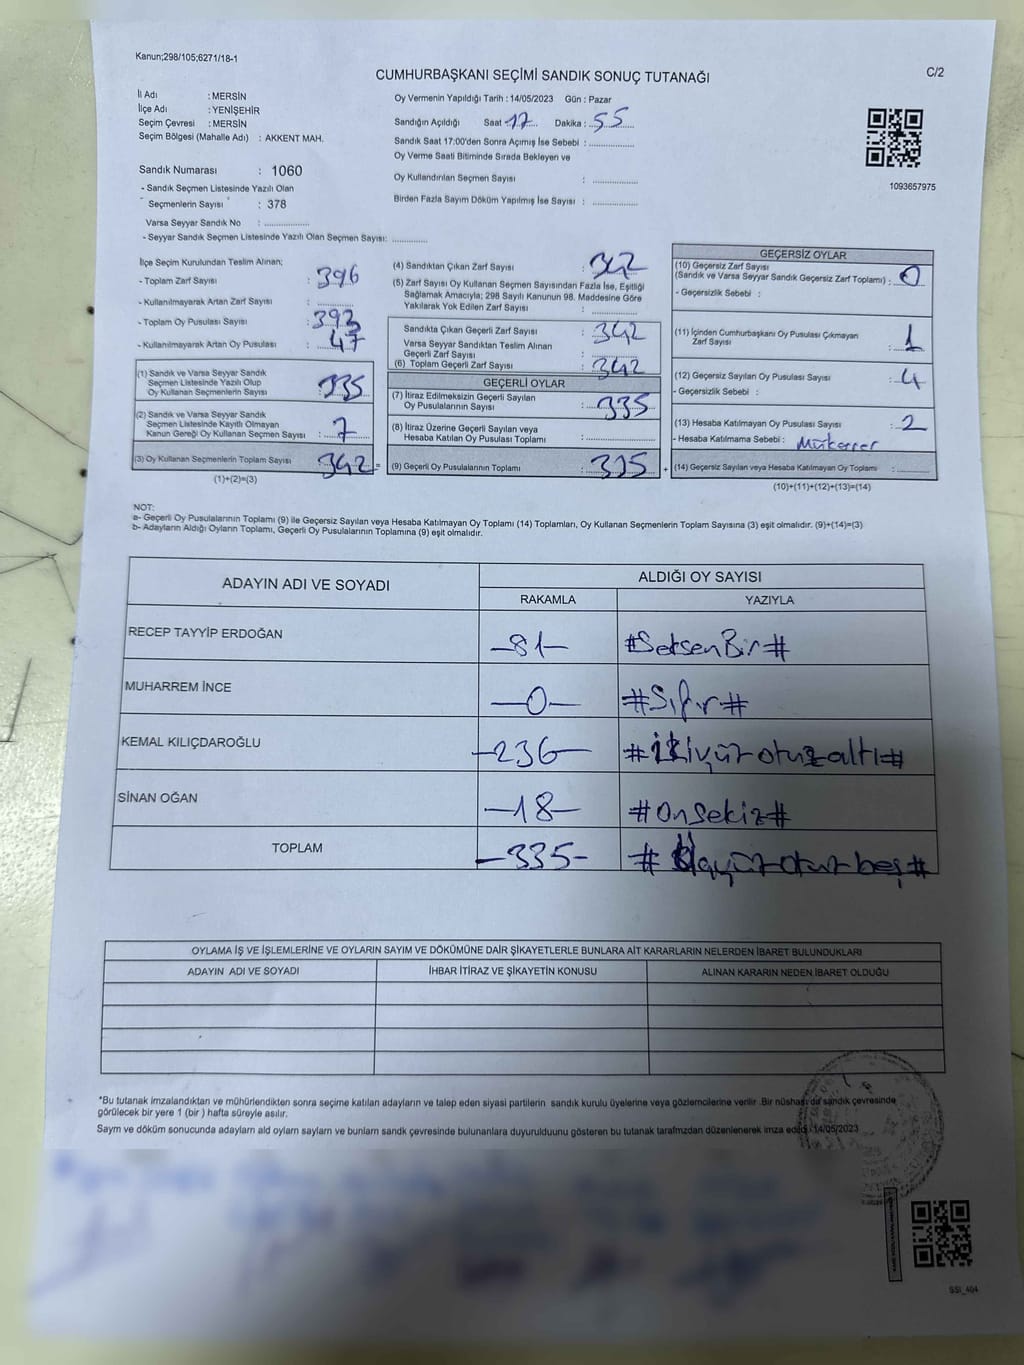 Kanun;298/105;6271/18-1
CUMHURBAŞKANI SEÇİMİ SANDIK SONUÇ TUTANAĞI
C/2
İl Adı : MERSİN
İlçe Adı : YENİŞEHİR
Seçim Çevresi : MERSİN
Seçim Bölgesi (Mahalle Adı) : AKKENT MAH.
Oy Vermenin Yapıldığı Tarih : 14/05/2023 Gün : Pazar
Sandığın Açıldığı Saat 17 Dakika : 55
Sandık Saat 17:00'den Sonra Açımış İse Sebebi :
Oy Verme Saati Bitiminde Sırada Bekleyen ve
Oy Kullandırılan Seçmen Sayısı :
Birden Fazla Sayım Döküm Yapılmış İse Sayısı :
1093657975
Sandık Numarası : 1060
- Sandık Seçmen Listesinde Yazılı Olan
Seçmenlerin Sayısı : 378
Varsa Seyyar Sandık No :
- Seyyar Sandık Seçmen Listesinde Yazılı Olan Seçmen Sayısı:
İlçe Seçim Kurulundan Teslim Alınan;
- Toplam Zarf Sayısı : 396
- Kullanılmayarak Artan Zarf Sayısı :
- Toplam Oy Pusulası Sayısı : 393
- Kullanılmayarak Artan Oy Pusulası : 47
(1) Sandık ve Varsa Seyyar Sandık
Seçmen Listesinde Yazılı Olup
Oy Kullanan Seçmenlerin Sayısı : 335
(2) Sandık ve Varsa Seyyar Sandık
Seçmen Listesinde Kayıtlı Olmayan
Kanun Gereği Oy Kullanan Seçmen Sayısı : 7
(3) Oy Kullanan Seçmenlerin Toplam Sayısı : 342 =
(1)+(2)=(3)
(4) Sandıktan Çıkan Zarf Sayısı : 342
(5) Zarf Sayısı Oy Kullanan Seçmen Sayısından Fazla İse, Eşitliği
Sağlamak Amacıyla; 298 Sayılı Kanunun 98. Maddesine Göre
Yakılarak Yok Edilen Zarf Sayısı :
Sandıkta Çıkan Geçerli Zarf Sayısı : 342
Varsa Seyyar Sandıktan Teslim Alınan
Geçerli Zarf Sayısı :
(6) Toplam Geçerli Zarf Sayısı : 342
GEÇERLİ OYLAR
(7) İtiraz Edilmeksizin Geçerli Sayılan
Oy Pusulalarının Sayısı : 335
(8) İtiraz Üzerine Geçerli Sayılan veya
Hesaba Katılan Oy Pusulası Toplamı :
(9) Geçerli Oy Pusulalarının Toplamı : 335 +
GEÇERSİZ OYLAR
(10) Geçersiz Zarf Sayısı
(Sandık ve Varsa Seyyar Sandık Geçersiz Zarf Toplamı) : 0
- Geçersizlik Sebebi :
(11) İçinden Cumhurbaşkanı Oy Pusulası Çıkmayan
Zarf Sayısı : 1
(12) Geçersiz Sayılan Oy Pusulası Sayısı : 4
- Geçersizlik Sebebi :
(13) Hesaba Katılmayan Oy Pusulası Sayısı : 2
- Hesaba Katılmama Sebebi : Mükerrer
(14) Geçersiz Sayılan veya Hesaba Katılmayan Oy Toplamı :
(10)+(11)+(12)+(13)=(14)
NOT:
a- Geçerli Oy Pusulalarının Toplamı (9) ile Geçersiz Sayılan veya Hesaba Katılmayan Oy Toplamı (14) Toplamları, Oy Kullanan Seçmenlerin Toplam Sayısına (3) eşit olmalıdır. (9)+(14)=(3)
b- Adayların Aldığı Oyların Toplamı, Geçerli Oy Pusulalarının Toplamına (9) eşit olmalıdır.
ADAYIN ADI VE SOYADI ALDIĞI OY SAYISI
RAKAMLA YAZIYLA
RECEP TAYYİP ERDOĞAN -81- #SeksenBir#
MUHARREM İNCE -0- #Sıfır#
KEMAL KILIÇDAROĞLU -236- #İkiyüz otuz altı#
SİNAN OĞAN -18- #Onsekiz#
TOPLAM -335- # Üçyüz otuz beş#
OYLAMA İŞ VE İŞLEMLERİNE VE OYLARIN SAYIM VE DÖKÜMÜNE DAİR ŞİKAYETLERLE BUNLARA AİT KARARLARIN NELERDEN İBARET BULUNDUKLARI
ADAYIN ADI VE SOYADI İHBAR İTİRAZ VE ŞİKAYETİN KONUSU ALINAN KARARIN NEDEN İBARET OLDUĞU
*Bu tutanak imzalandıktan ve mühürlendikten sonra seçime katılan adayların ve talep eden siyasi partilerin sandık kurulu üyelerine veya gözlemcilerine verilir .Bir nüshası da sandık çevresinde
görülecek bir yere 1 (bir ) hafta süreyle asılır.
Saym ve döküm sonucunda adaylarn ald oylarn saylarn ve bunlarn sandk çevresinde bulunanlara duyurulduunu gösteren bu tutanak tarafmzdan düzenlenerek imza edildi. 14/05/2023
SSI_404